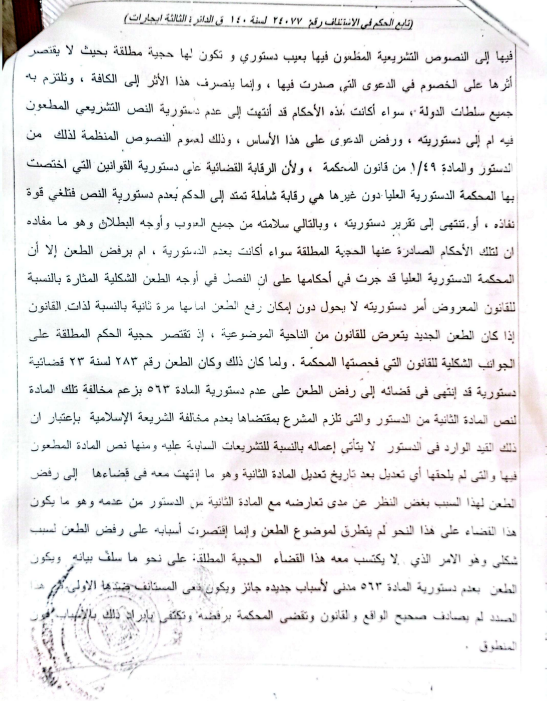 (تابع الحكم في الاستئناف رقم ٢٤٠٧٧ لسنة ١٤٠ ق الدائرة الثالثة ايجارات)
فيها إلى النصوص التشريعية المطعون فيها بعيب دستوري و تكون لها حجية مطلقة بحيث لا يقتصر
أثرها على الخصوم في الدعوى التي صدرت فيها ، وإنما ينصرف هذا الأثر إلى الكافة ، وتلتزم به
جميع سلطات الدولة ، سواء أكانت هذه الأحكام قد أنتهت إلى عدم دستورية النص التشريعي المطعون
فيه ام إلى دستوريته ، ورفض الدعوى على هذا الأساس ، وذلك لعموم النصوص المنظمة لذلك من
الدستور والمادة ١/٤٩ من قانون المحكمة ، ولأن الرقابة القضائية على دستورية القوانين التي اختصت
بها المحكمة الدستورية العليا دون غيرها هي رقابة شاملة تمتد إلى الحكم بعدم دستورية النص فتلغي قوة
نفاذه ، أو تنتهى إلى تقرير دستوريته ، وبالتالي سلامته من جميع العيوب وأوجه البطلان وهو ما مفاده
ان لتلك الأحكام الصادرة عنها الحجية المطلقة سواء أكانت بعدم الدستورية ، ام برفض الطعن إلا أن
المحكمة الدستورية العليا قد جرت في أحكامها على ان الفصل في أوجه الطعن الشكلية المثارة بالنسبة
للقانون المعروض أمر دستوريته لا يحول دون إمكان رفع الطعن امامها مرة ثانية بالنسبة لذات القانون
إذا كان الطعن الجديد يتعرض للقانون من الناحية الموضوعية ، إذ تقتصر حجية الحكم المطلقة على
الجوانب الشكلية للقانون التي فحصتها المحكمة . ولما كان ذلك وكان الطعن رقم ٢٨٣ لسنة ٢٣ قضائية
دستورية قد إنتهى فى قضائه إلى رفض الطعن على عدم دستورية المادة ٥٦٣ بزعم مخالفة تلك المادة
لنص المادة الثانية من الدستور والتى تلزم المشرع بمقتضاها بعدم مخالفة الشريعة الإسلامية بإعتبار ان
ذلك القيد الوارد فى الدستور لا يتأتى إعماله بالنسبة للتشريعات السابقة عليه ومنها نص المادة المطعون
فيها والتى لم يلحقها أي تعديل بعد تاريخ تعديل المادة الثانية وهو ما إنتهت معه في قضاءها إلى رفض
الطعن لهذا السبب بغض النظر عن مدى تعارضه مع المادة الثانية من الدستور من عدمه وهو ما يكون
هذا القضاء على هذا النحو لم يتطرق لموضوع الطعن وإنما إقتصرت أسبابه على رفض الطعن لسبب
شكلي وهو الامر الذي لا يكتسب معه هذا القضاء الحجية المطلقة على نحو ما سلف بيانه ويكون
الطعن بعدم دستورية المادة ٥٦٣ مدنى لأسباب جديده جائز ويكون نعى المستانف ضدها الاولى في هذا
الصدد لم يصادف صحيح الواقع والقانون وتقضى المحكمة برفضه وتكتفى بإيراد ذلك بالأسباب دون
المنطوق .